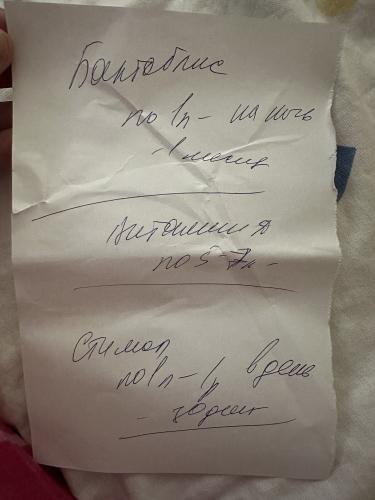 Бактоблис
по 1т - на ночь
- 1 месяц
Витамин Д
по 5-7к -
Стимол
по 1п - 1р в день
- 10 дней